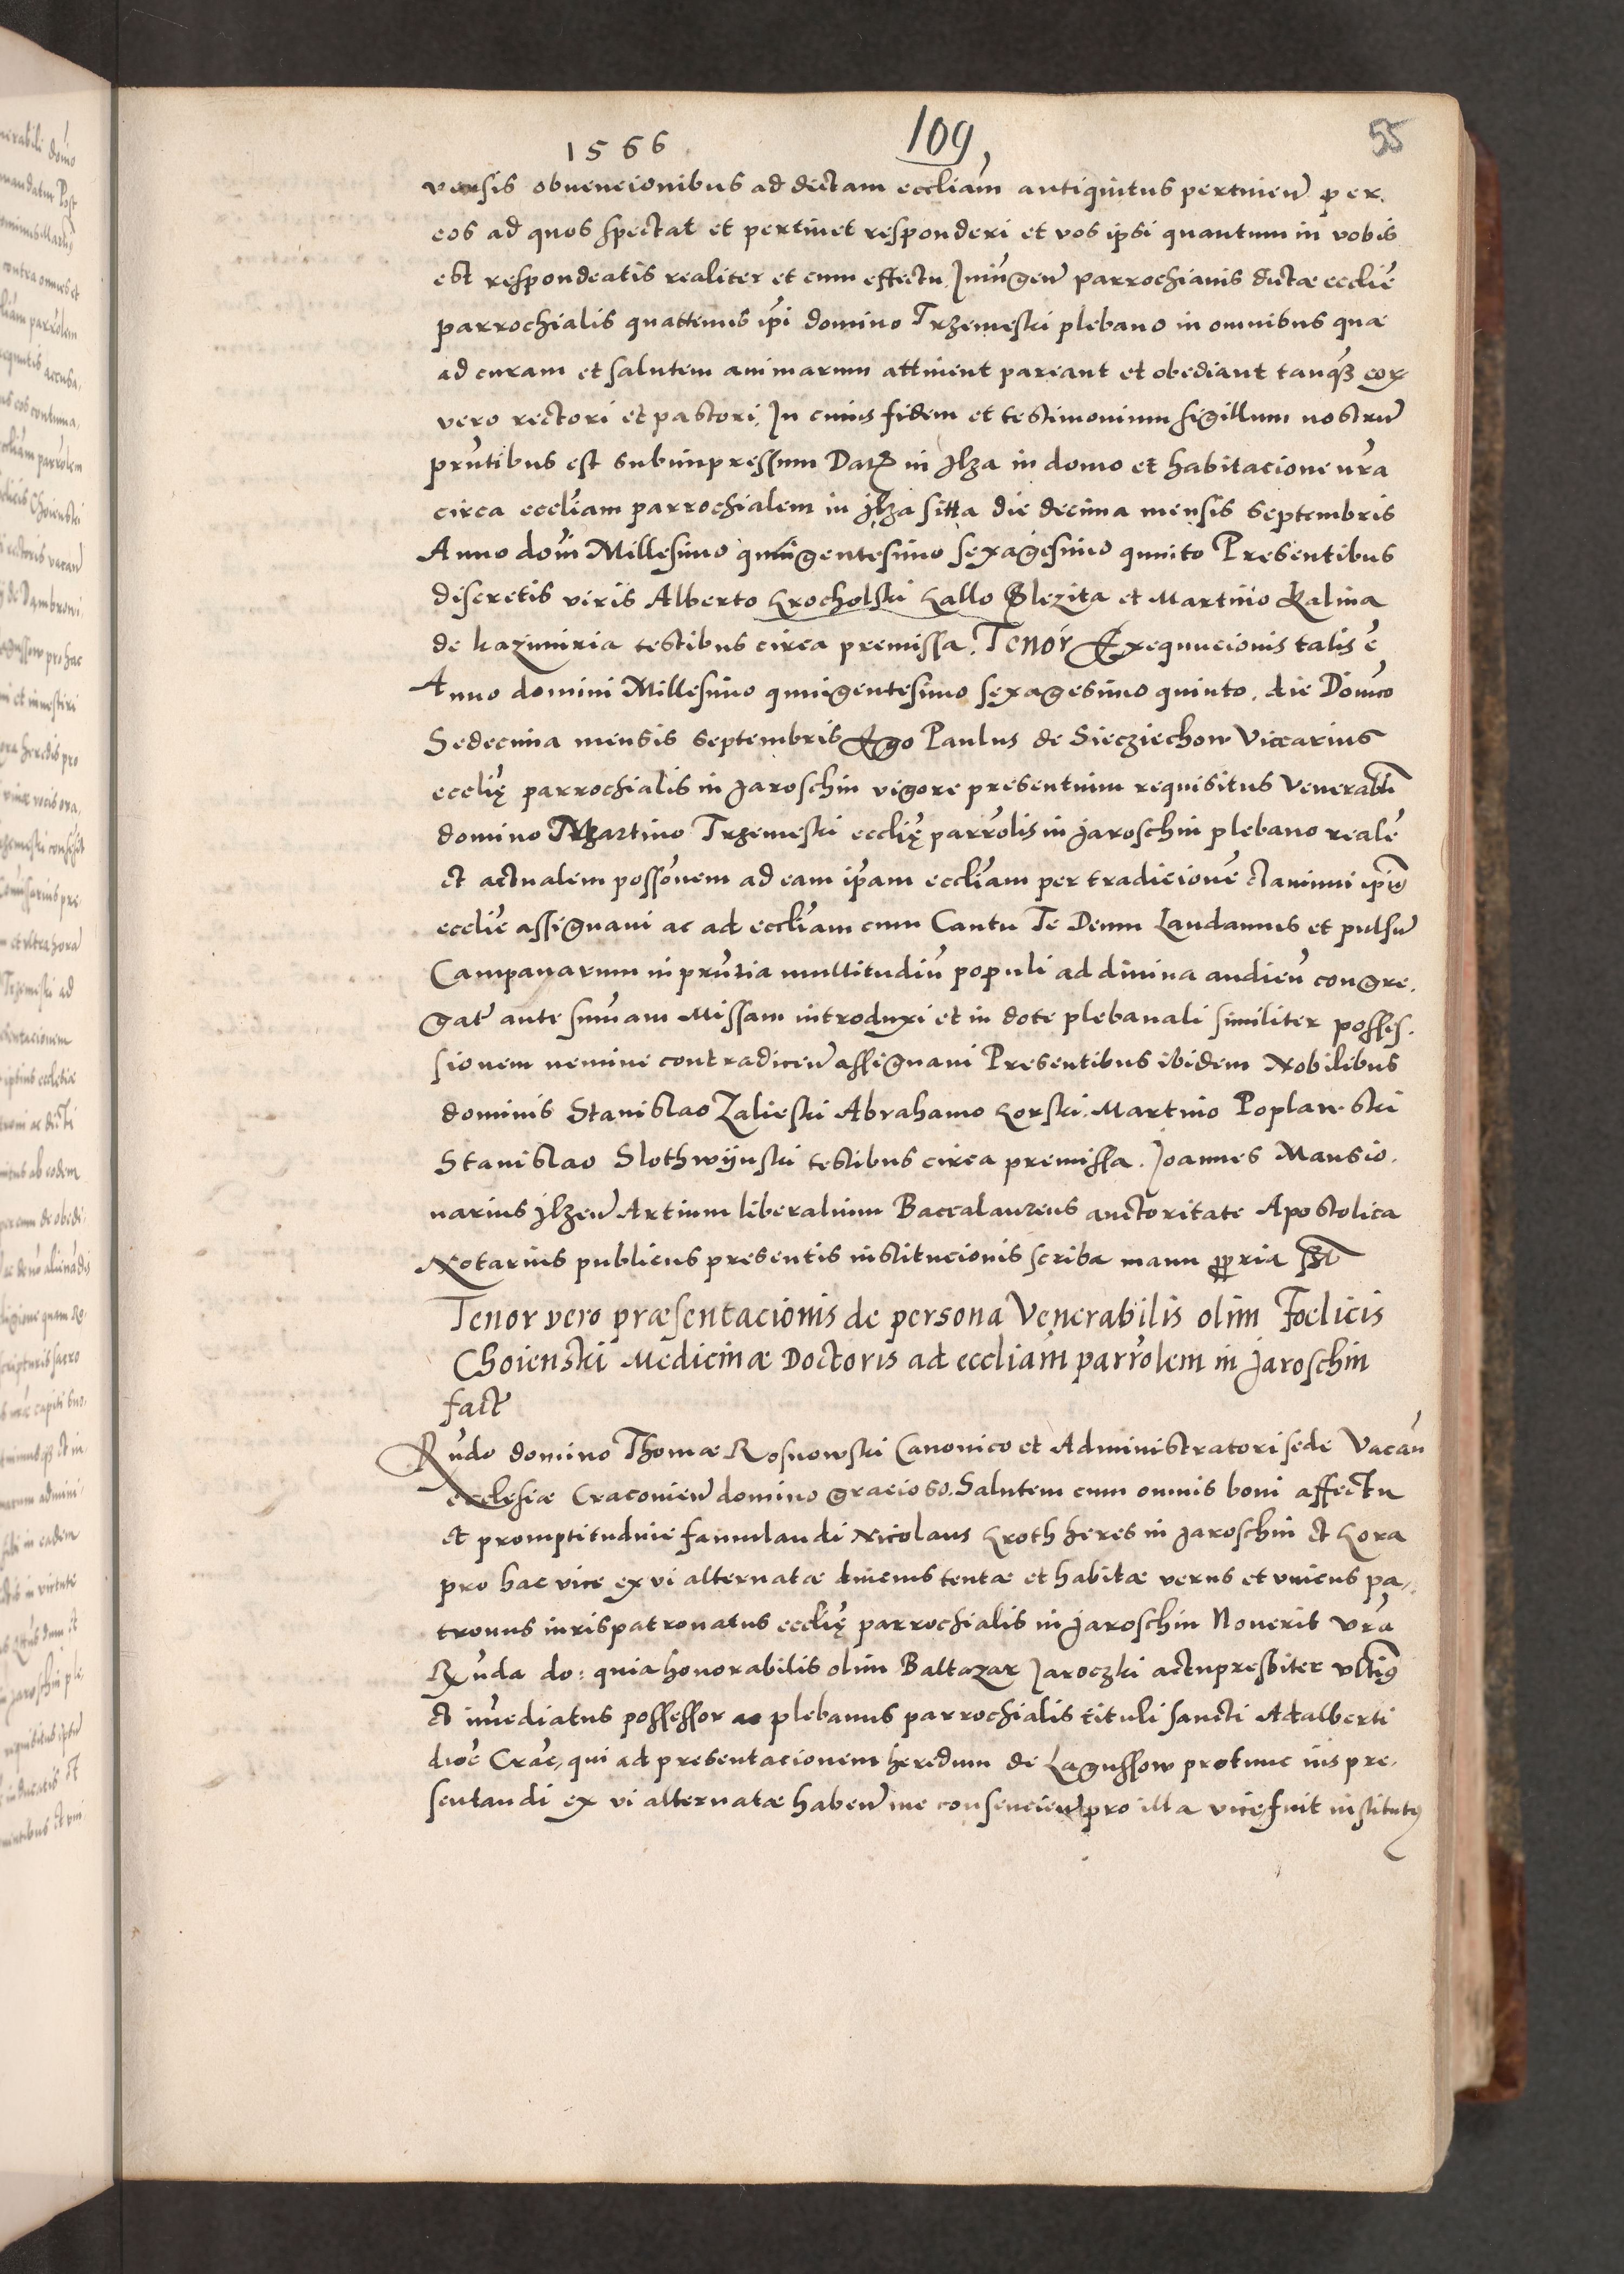 1566
109
55
versis obvencionibus ad dictam eccliam antiquitus pertinen per
eos ad quos spectat et pertinet responderi et vos ipsi quantum in vobis
est respondeatis realiter et cum effectu. Iniungen parrochianis dictæ ecclie
parrochialis quattenus ipi domino Trzemeski plebano in omnibus quæ
ad curam et salutem animarum attinent pareant et obediant tanq eor
vero rectori et pastori. In cuius fidem et testimonium sigillum nostru
pntibus est subimpressum Dat in Ilza in domo et habitacione nra
circa eccliam parrochialem in Ilza sitta die decima mensis septembris
Anno dom Millesimo quingentesimo sexagesimo quinto Presentibus
discretis viris Alberto Krocholski Gallo Slezita et Martino Kalina
de Kazimiria testibus circa premissa. Tenor Exequucionis talis e
Anno domini Millesimo quingentesimo sexagesimo quinto. die Domco
Sedecima mensis septembris Ego Paulus de Siecziechow Vicarius
ecclię parrochialis in Jaroschin vigore presentium requisitus Venerabli
domino Martino Trzemeski ecclię parrolis in Jaroschin plebano reale
et actualem possonem ad eam ipam eccliam per tradicione clavium ipius
ecclie assignavi ac ad eccliam cum Cantu Te Deum Laudamus et pulsu
Campanarum in pntia multitudin populi ad divina audien congre.
gat ante sumam Missam introduxi et in dote plebanali similiter posses.
sionem nemine contradicen assignavi Presentibus ibidem Nobilibus
dominis Stanislao Zalieski Abrahamo Gorski. Martino Poplawski
Stanislao Slothwijnski testibus circa premissa. Joannes Mansio.
narius Ilzen Artium liberalium Baccalaureus auctoritate Apostolica
Notarius publicus presentis institucionis scriba manu ppria sst
Tenor vero præsentacionis de persona Venerabilis olim Foelicis
Choienski Medicinæ Doctoris ad eccliam parrolem in Jaroschin
fact
Rndo domino Thomæ Rosnowski Canonico et Administratori sede Vacan
ecclesiæ Cracovien domino gracioso. Salutem cum omnis boni affectu
et promptitudine famulandi Nicolaus Kroth heres in Jaroschin et Gora
pro hac vice ex vi alternatæ hucus tentæ et habitæ verus et unicus pa
tronus iuris patronatus ecclię parrochialis in Jaroschin Noverit vra
Rnda do: quia honorabilis olim Baltazar Jaroczki actupresbiter ultius
et imediatus possessor ac plebanus parrochialis tituli sancti Adalberti
dioc Crac, qui ad presentacionem heredum de Lagussow protunc ius pre.
sentandi ex vi alternatæ haben me consencien pro illa vice fuit institutus